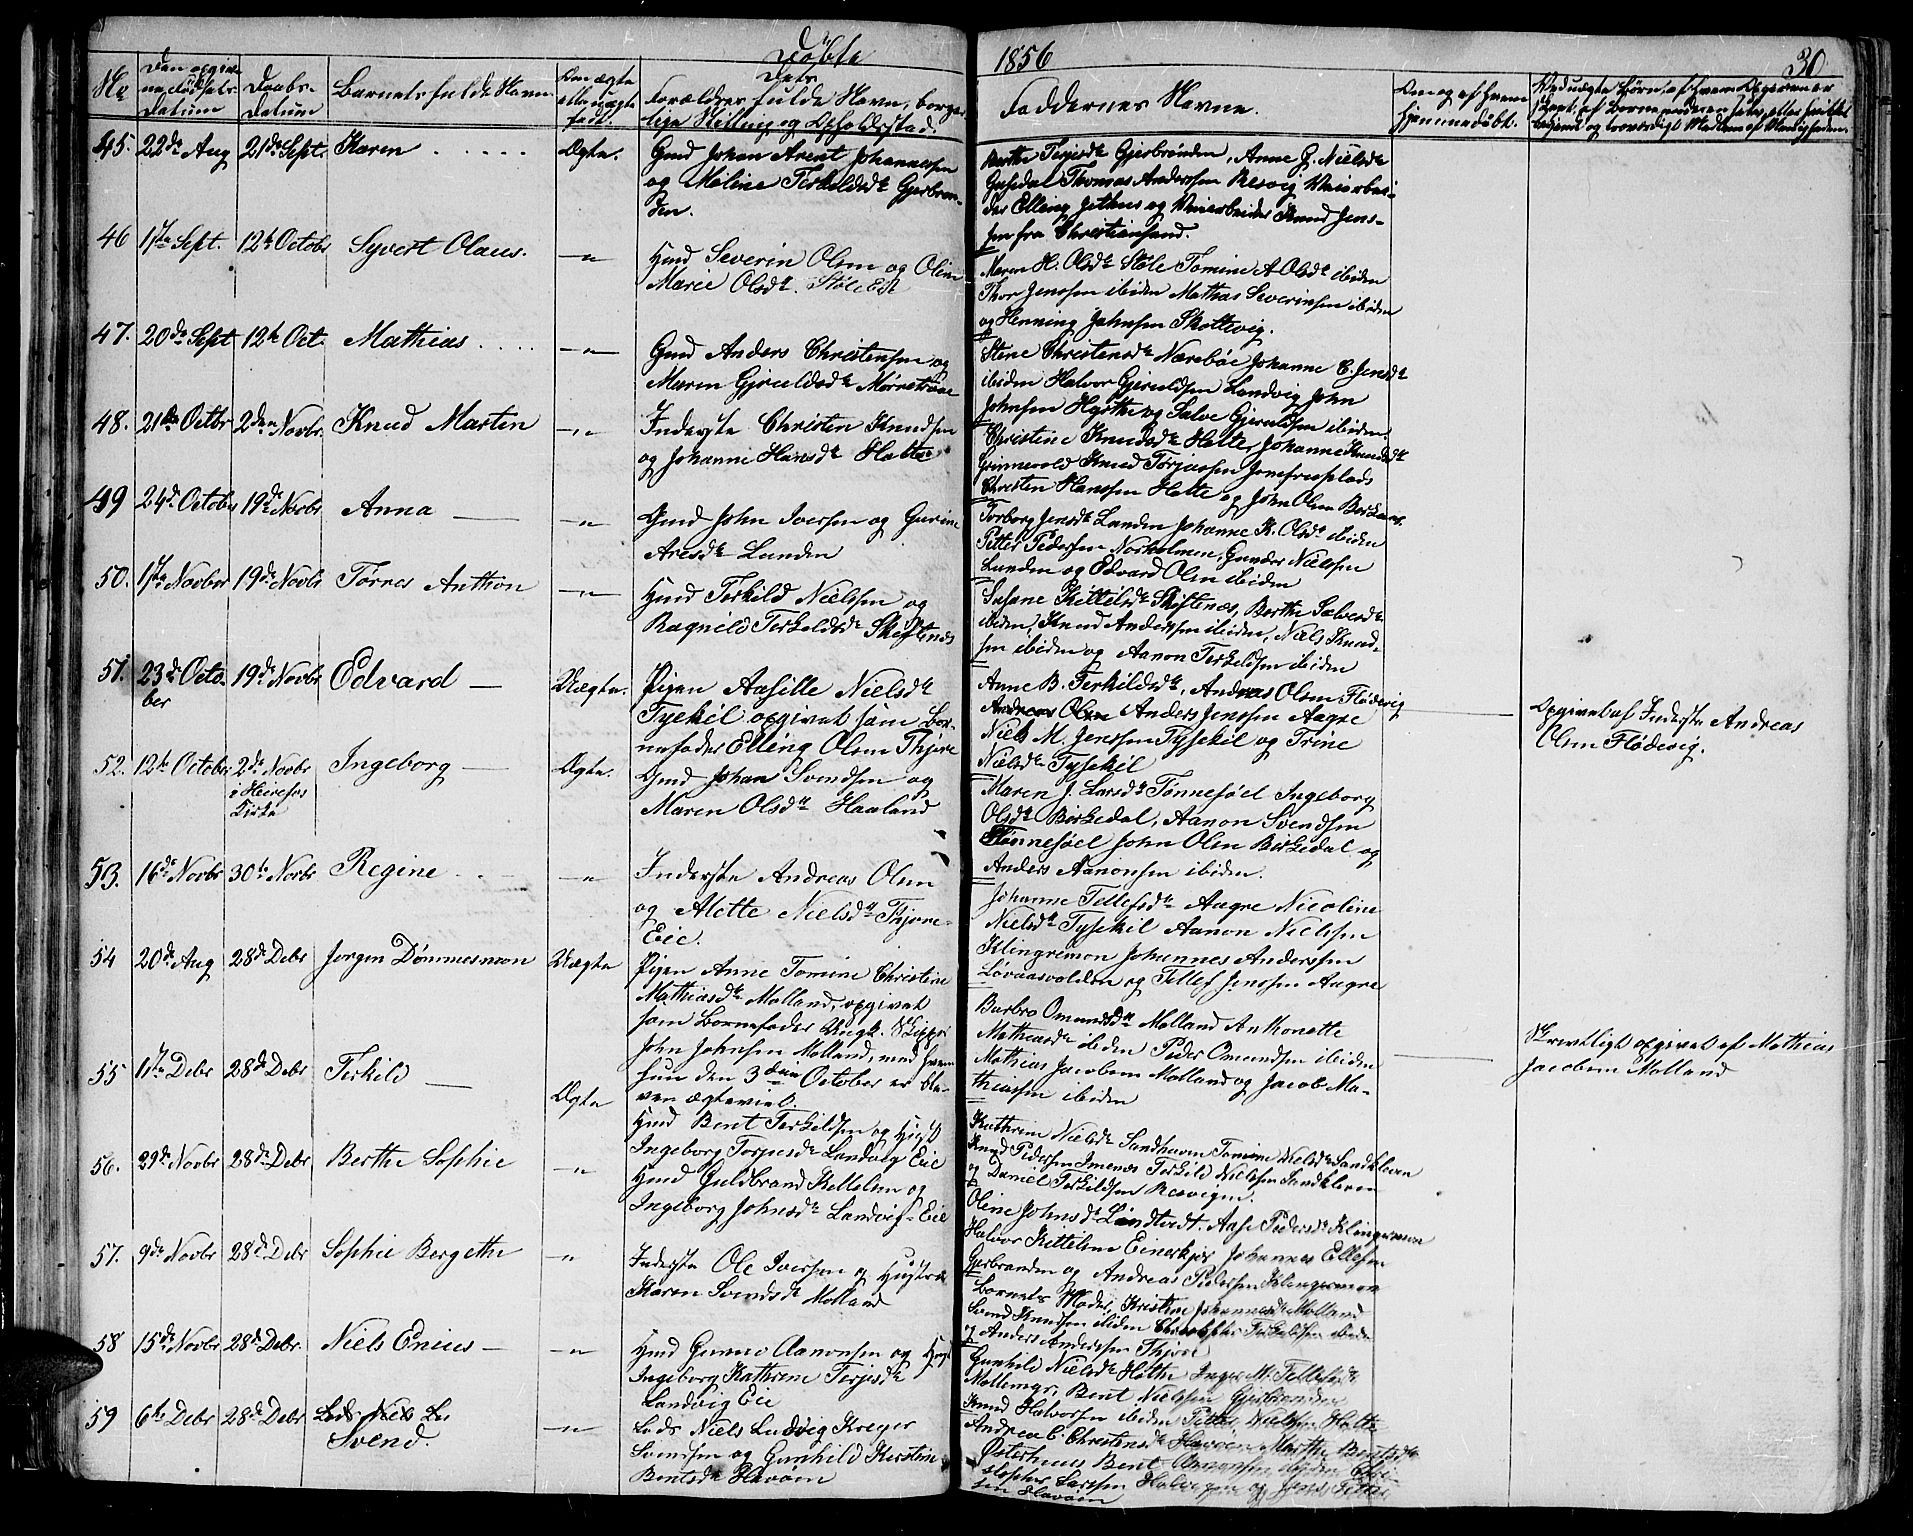 Døbte
1856
30
No
Den opgivne Fødsels-Datum
Daabs-Datum
Barnets fulde Navn
Om ægte eller uægte født
Dets Forældres fulde Navn, borgerlige Stilling og Opholdssted.
Faddernes Navne.
Om og af hvem hjemmedøbt.
45. 22de Aug 21de Septr Karen Ægte.
Gmd Johan Arent Johannesen
og Maline Terkildsdtr Gjerbrønden.
Berthe Terjesdtr Gjerbrønden, Anne G. Nielsdtr
Thomas Anderssen Resvig
og Knud Jenssen fra Christiansand.
46 1ste Sept. 12te Octobr Syvert Olaus. —"—
Hmd Severin Olsen og Oline
Marie Olsdtr. Støle Eie
Maren H. Olsdtr Støle Tomine A Olsdtr ibiden
Thor Jenssen ibiden Mathias Severinsen ibiden
og Henning Johnsen Skottevig.
47. 20de Sept 12te Oct. Mathias —"—
Gmd Anders Christensen og
Maren Gjeruldsdtr
Stene Christensdtr Nærebøe Johanne C. Jensdtr
ibiden Halvor Gjeruldsen Landvig John
Johnsen Høgthe og Salve Gjeruldsen ibiden.
48. 21de Octbr 2den Novbr. Knud Martin —"—
Inderste Christen Knudsen
og Johanne Hansdtr Holte
Christine Knudsdtr Holte, Johanne Knudsdtr
Grinnevold Knud Torjussen
Christen Hanssen Holte og John Olsen
49 24de October 19de Novbr Anna —"—
Gmd John Iversen og Gurine
Aresdtr Lunden
Torborg Jensdtr Lunden Johanne K. Olsdtr ibiden
Petter Pedersen Norholmen, Gunder Nielssen
Lunden og Edvard Olsen ibiden
50. 1ste Novber 19de Novbr Tørres Anthon —"—
Hmd Terkild Nielssen og
Ragnild Terkeldsdtr Skiftenes
Susane Kittelsdtr Skiftenes, Berthe Salvesdtr
ibiden, Knud Anderssen ibiden, Niels Knudsen
ibiden og Aanon Terkeldsen ibiden
51. 23de October 19de Novbr Edvard Uægte.
Pigen Aasille Nielsdtr
Tysekil opgivet som Barnefader
Elling Olsen Thjore
Anne B. Terkildsdtr, Andreas Olsen Flødevig
Anders Jenssen Aagre
Niels M. Jenssen Tysekil og Trine
Nielsdtr Tysekil
Opgivet af Inderste Andreas
Olsen Flødevig.
52. 12te October 2de Novbr i Heirefos Kirke Ingeborg Ægte.
Gmd Johan Svendsen og
Maren Olsdtr Haaland
Maren J. Larsdtr Tønnesøel Ingeborg
Olsdtr Birkedal, Aanon Svendsen
Tønnesøel John Olsen Birkedal og
Anders Aanonsen ibiden.
53. 16de Novbr 30te Novbr Regine "
Inderste Andreas Olsen
og Alette Nielsdtr Thjore-
Eie.
Johanne Tellefsdtr Aagre Nicoline
Nielsdtr Tysekil Aanon Nielssen
Klingremon Johannes Anderssen
Løvaasvolden og Tellef Jenssen Aagre
54 20de Aug 28de Debr Jørgen Dømmesmoen Uægte
Pigen Anne Tomine Christine
Mathiasdtr Molland, opgivet
som Barnefader Ungk.
John Johnsen Molland, med hvem
hun den 3den October er bleven
ægteviet.
Burbro Omundsdtr Molland Anthonette
Mathiasdtr ibiden Peder Omundsen ibiden
Mathias Jacobsen Molland og Jacob Mathiassen
ibiden
Skrivtligt opgivet af Mathias
Jacobsen Molland
55 1ste Debr 28de Debr Terkild Ægte
Hmd Bent Terkeldsen og Hust
Ingeborg Torjusdtr Landvig Eie
Kathrine Nielsdtr Sandhaven Tomine Nielsdtr Sandkleven
Knud Pedersen Imenes Terkild Nielssen Sandkleven
og Daniel Terkildsen Resvigen.
56. 29de Novbr 28de Debr Berthe Sophie "
Hmd Guldbrand Kittelsen og
Ingeborg Johnsdtr Landvig-Eie
Oline Johnsdtr Londtvedt. Aase Pedersdtr Klingremon
Halvor Kittelsen Johannes Ellefsen
Gjerbranden og Andreas Pedersen Klingremon
57. 9de Novbr 28de Debr Sophie Bergethe "
Inderste Ole Iversen og Hustru
Karen Svendsdtr Molland
Barnets Moder, Kristine Johannesdtr Molland
Svend Knudsen ibiden Christopher Terkeldsen ibiden
og Anders Anderssen Thjore
58 15de Novbr 28de Debr. Niels Enius —"—
Hmd Gunne Aanonsen og Hust
Ingeborg Kathrine Terjesdtr
Landvig Eie
Gunhild Nielsdtr Holthe Inger M. Tellefsdtr
Mollemyr, Bent Nielssen Gjerbrønden
Knud Halvorsen ibiden Petter Nielssen Holte
59 6te Debr 28de Debr Svend. —"—
Lods Niels Ludvig Kreger
Svendsen og Gunhild Kirstine
Bentsdtr Havøen
Andrea C. Christensdtr Havøen Marthe Bentsdtr
Østerhuus Bent ibiden Christopher
Larssen og Jens Petter-
sen Havøen